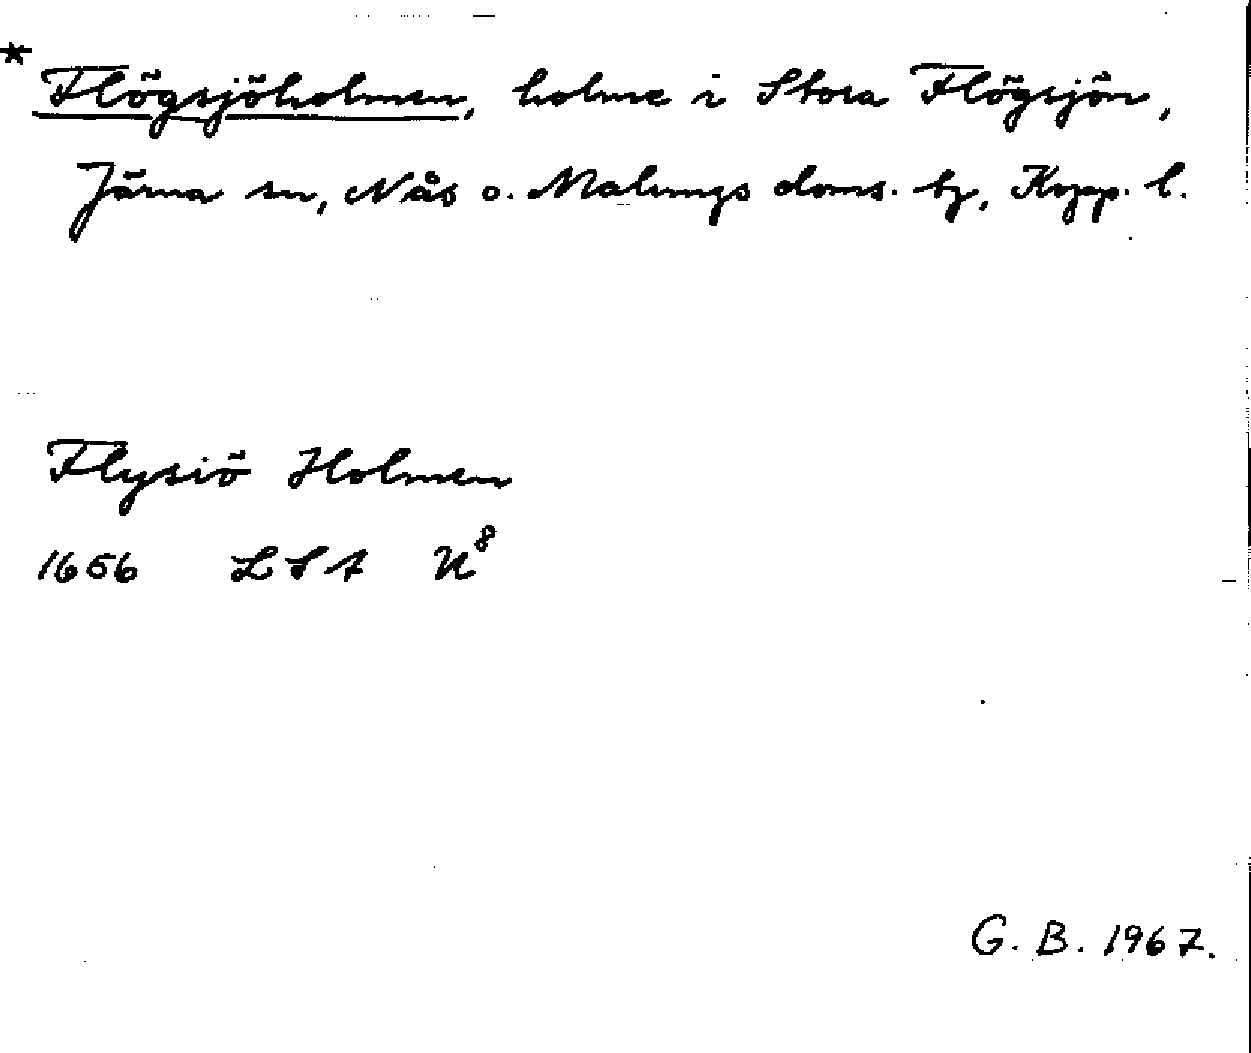 * Flögsjöholmen, holme i Stora Flögsjön,
Järna sn, Nås o. Malungs doms. hz, Kopp. l.
Flysiö Holmen
1656 LSA U⁸
G. B. 1967.